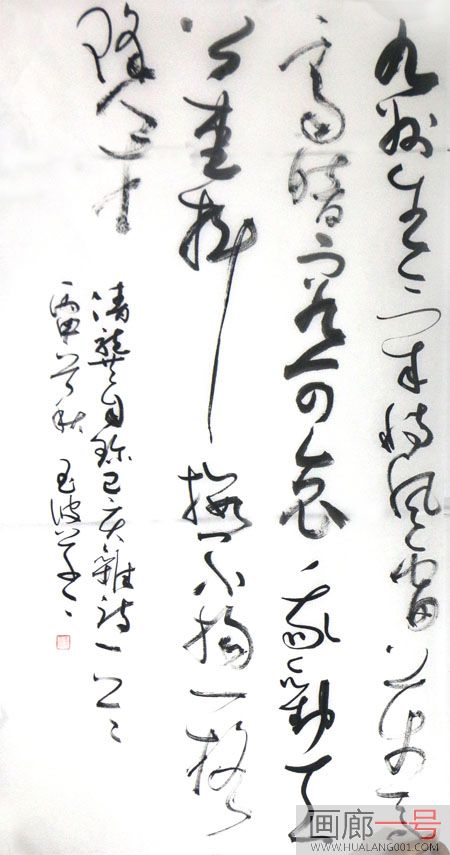 九州生气恃風雷万馬
齊喑究可哀我勸天
公重抖擞不拘一格
降人才
清龔自珍己亥雜詩一
丙申 秋 玉波
画廊一号
WWW.HUALANG001.COM